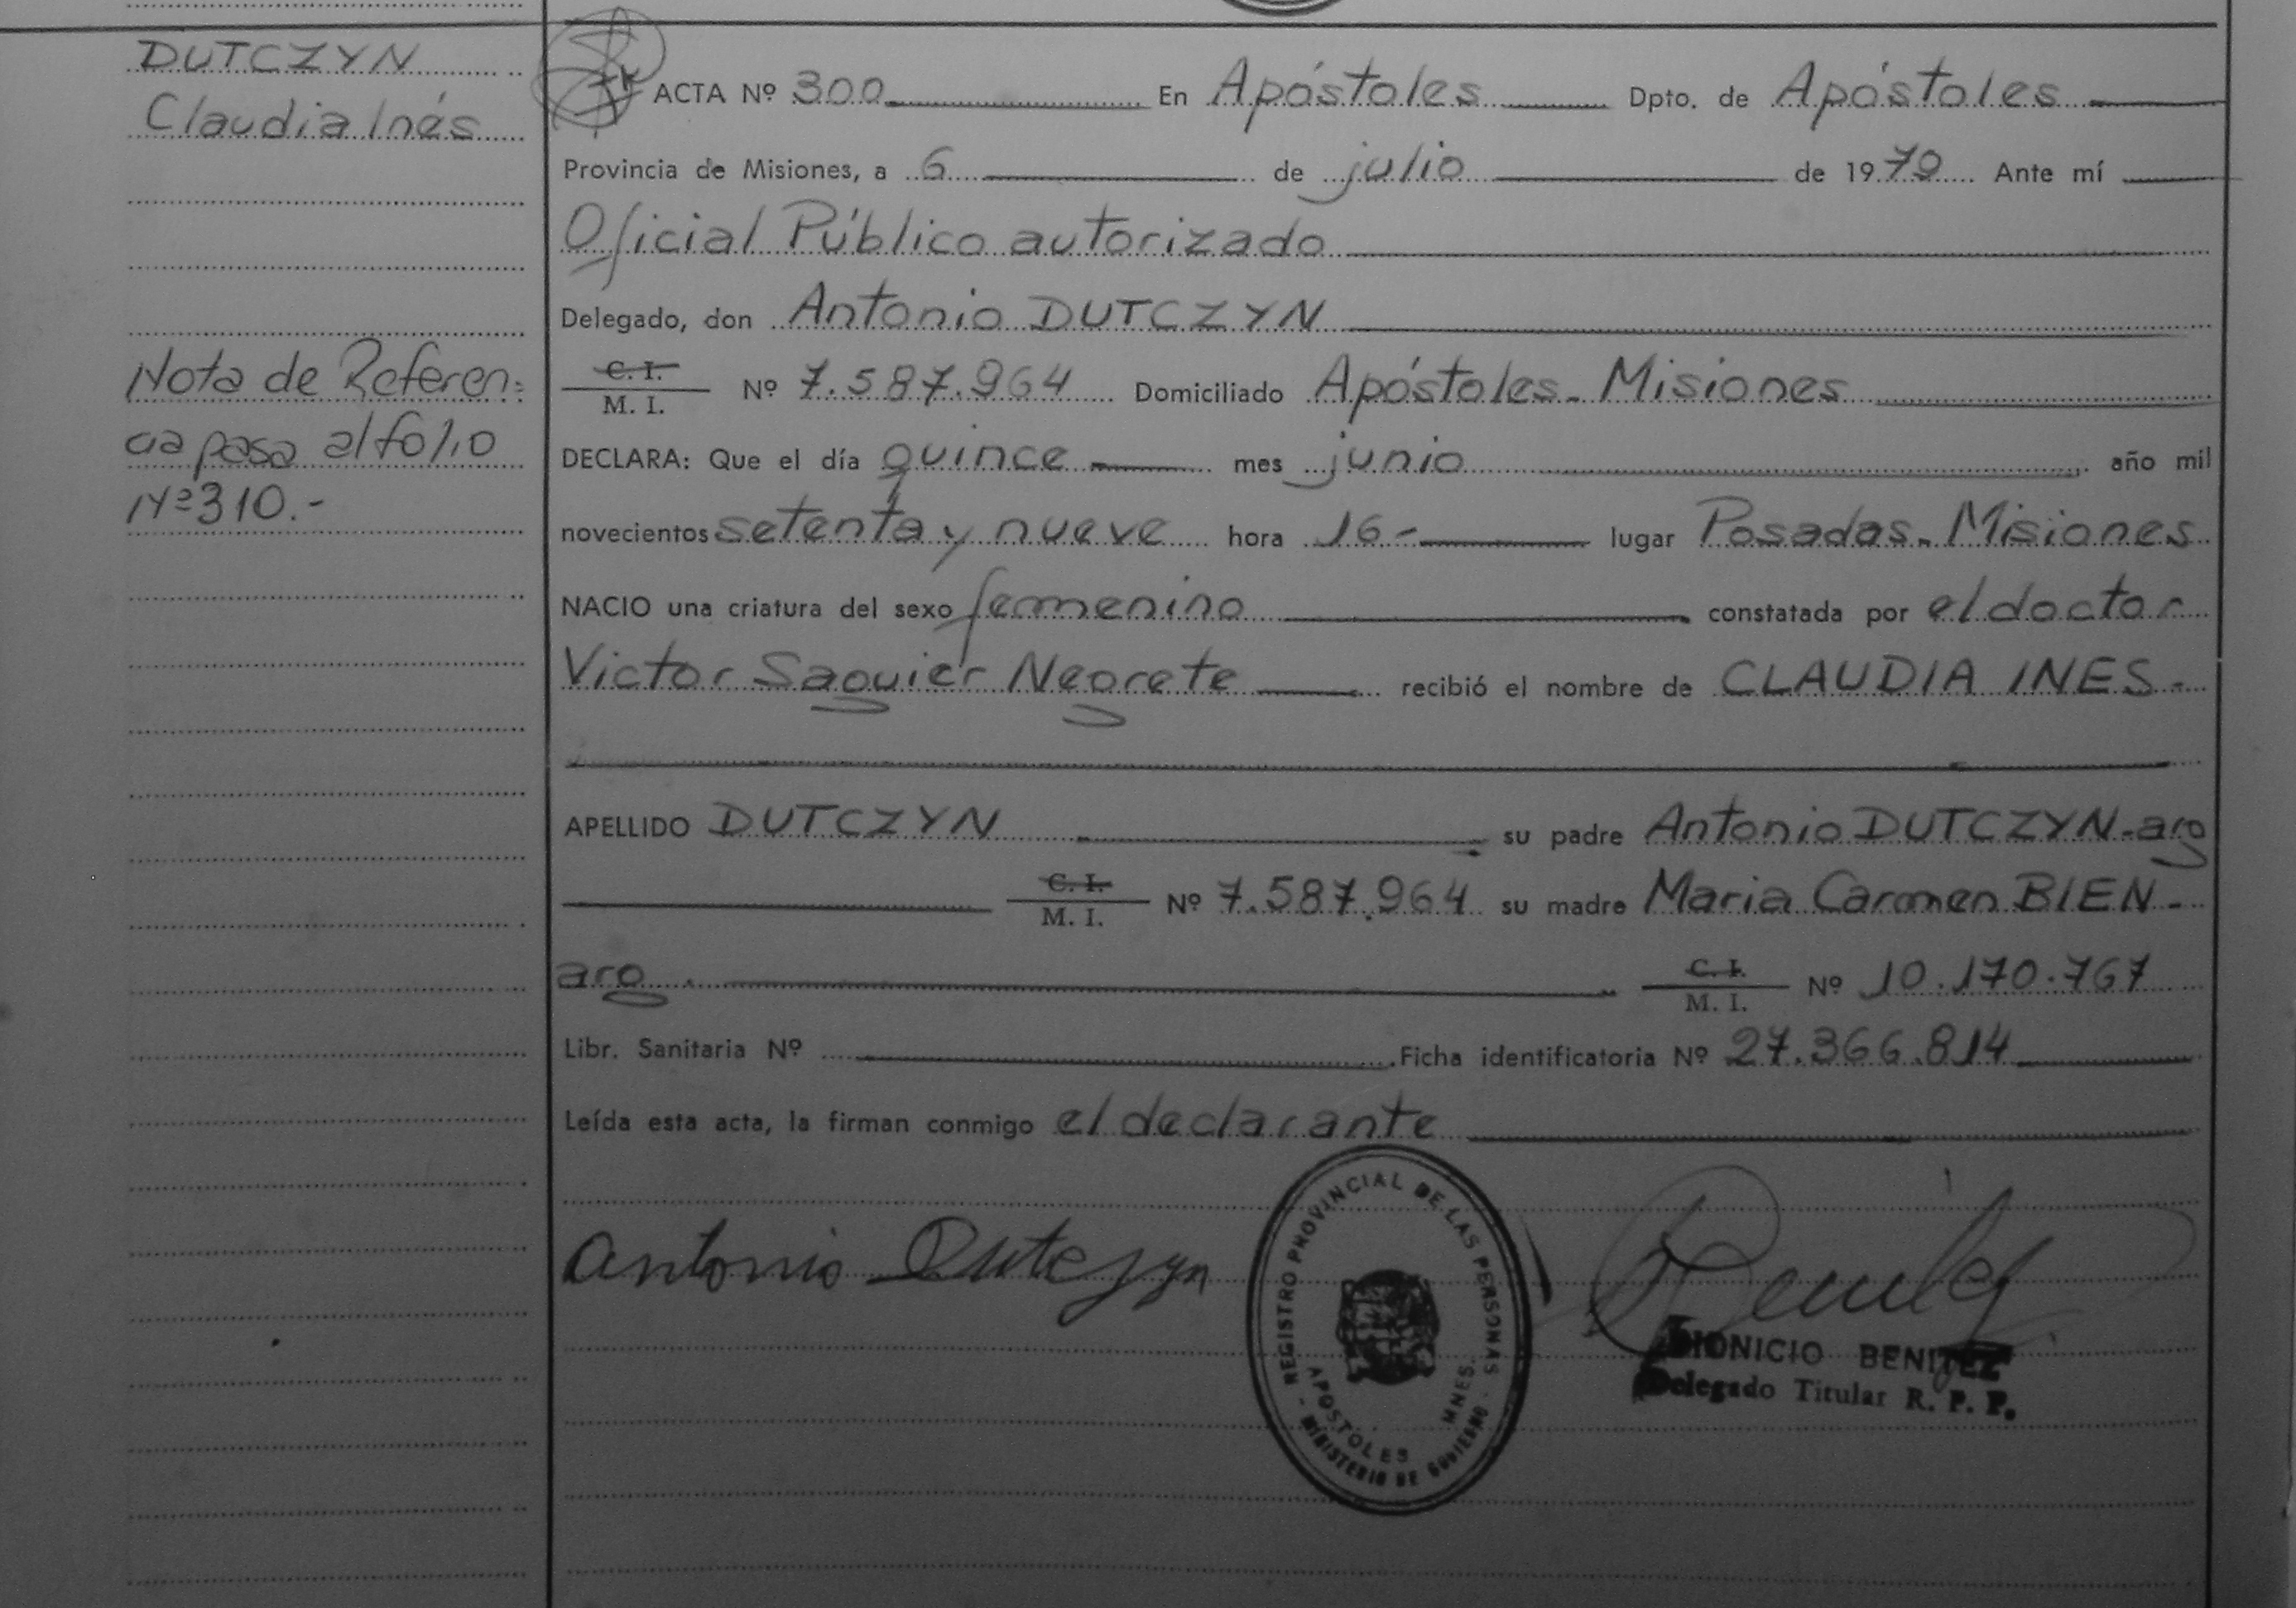 DUTCZYN
Claudia Inés
Nota de Referen-
cia pasa al folio
Nº 310.-
ACTA Nº 300 En Apóstoles Dpto. de Apóstoles
Provincia de Misiones, a 6 de julio de 1979 Ante mí
Oficial Público autorizado
Delegado, don Antonio DUTCZYN
C. I.
M. I. Nº 7.587.964 Domiciliado Apóstoles - Misiones
DECLARA: Que el día quince mes junio año mil
novecientos setenta y nueve hora 16- lugar Posadas - Misiones
NACIO una criatura del sexo femenino constatada por el doctor
Victor Saguier Negrete recibió el nombre de CLAUDIA INES -
APELLIDO DUTCZYN su padre Antonio DUTCZYN - arg
C. I.
M. I. Nº 7.587.964 su madre Maria Carmen BIEN -
arg C. I.
M. I. Nº 10.170.767
Libr. Sanitaria Nº Ficha identificatoria Nº 27.366.814
Leída esta acta, la firman conmigo el declarante
Antonio Dutczyn
REGISTRO PROVINCIAL DE LAS PERSONAS
APOSTOLES MNES.
- MINISTERIO DE GOBIERNO -
DIONICIO BENITEZ
Delegado Titular R. P. P.